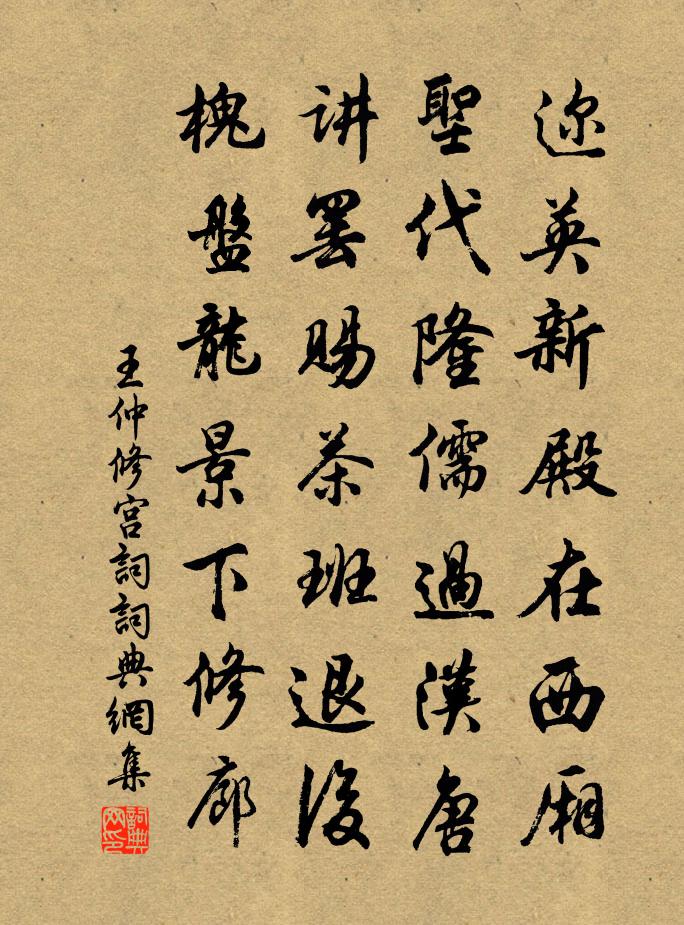 迩英新殿在西厢
聖代隆儒過漢唐
讲罢賜茶班退後
槐盤龍景下修廊
王仲修宫詞詞典網集
詞典网印